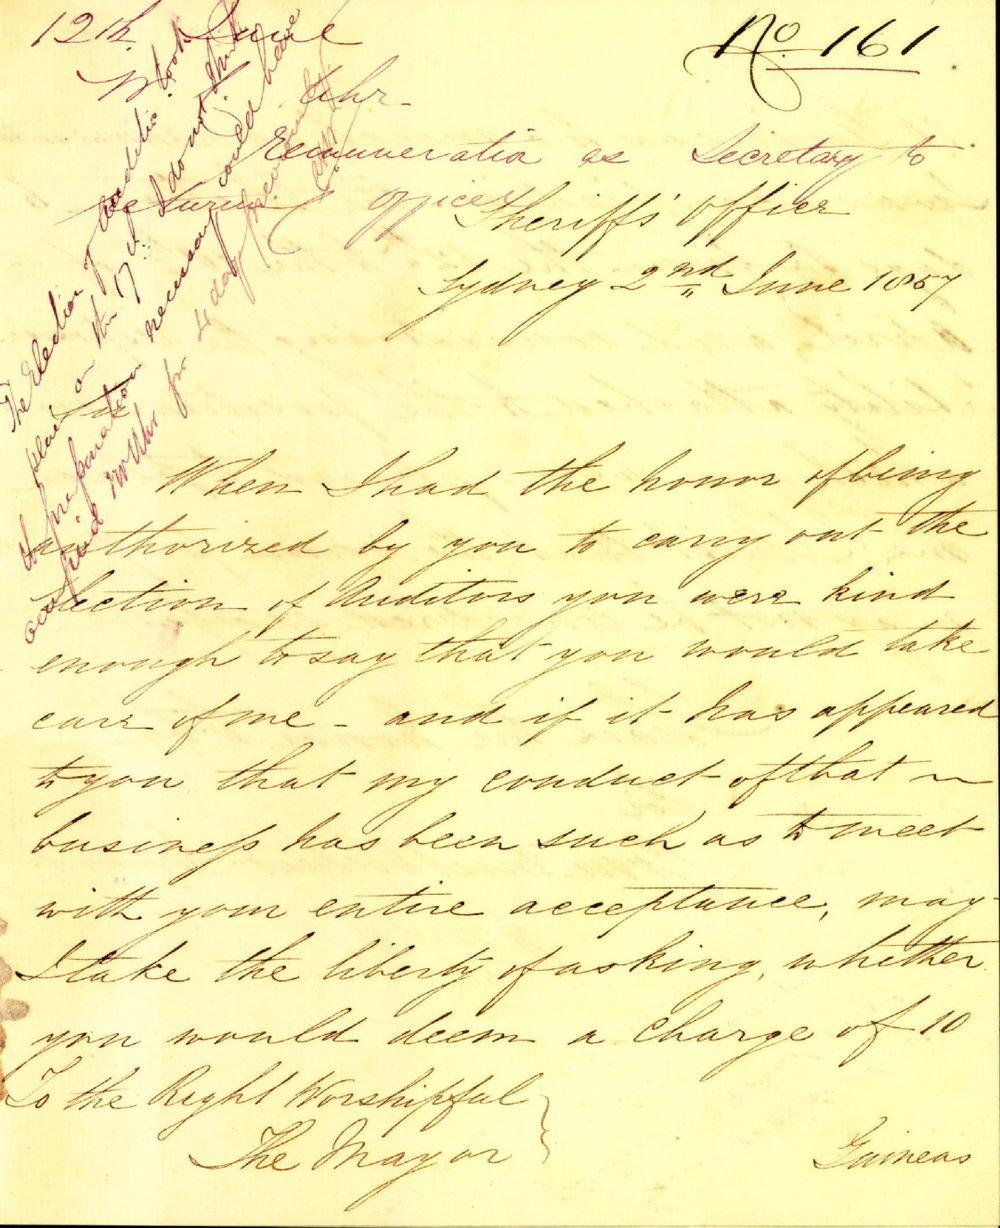 12th June
No 161
Uhr
Remuneration as Secretary to
Returning Officer
Sheriffs' Office
Sydney 2nd June 1857
The Election of Auditors took
place on the I do not think
the preparation necessary could have
occupied Mr Uhr for 4 days previously
Sir
When I had the honor of being
authorized by you to carry out the
Election of Auditors you were kind
enough to say that you would take
care of me - and if it has appeared
to you that my conduct of that ~
business has been such as to meet
with your entire acceptance, may
I take the liberty of asking, whether
you would deem a charge of 10
To the Right Worshipful
The Mayor
Guineas